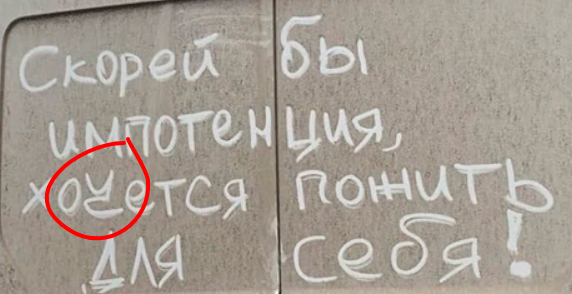 Скорей бы
импотенция,
хочется пожить
для себя!